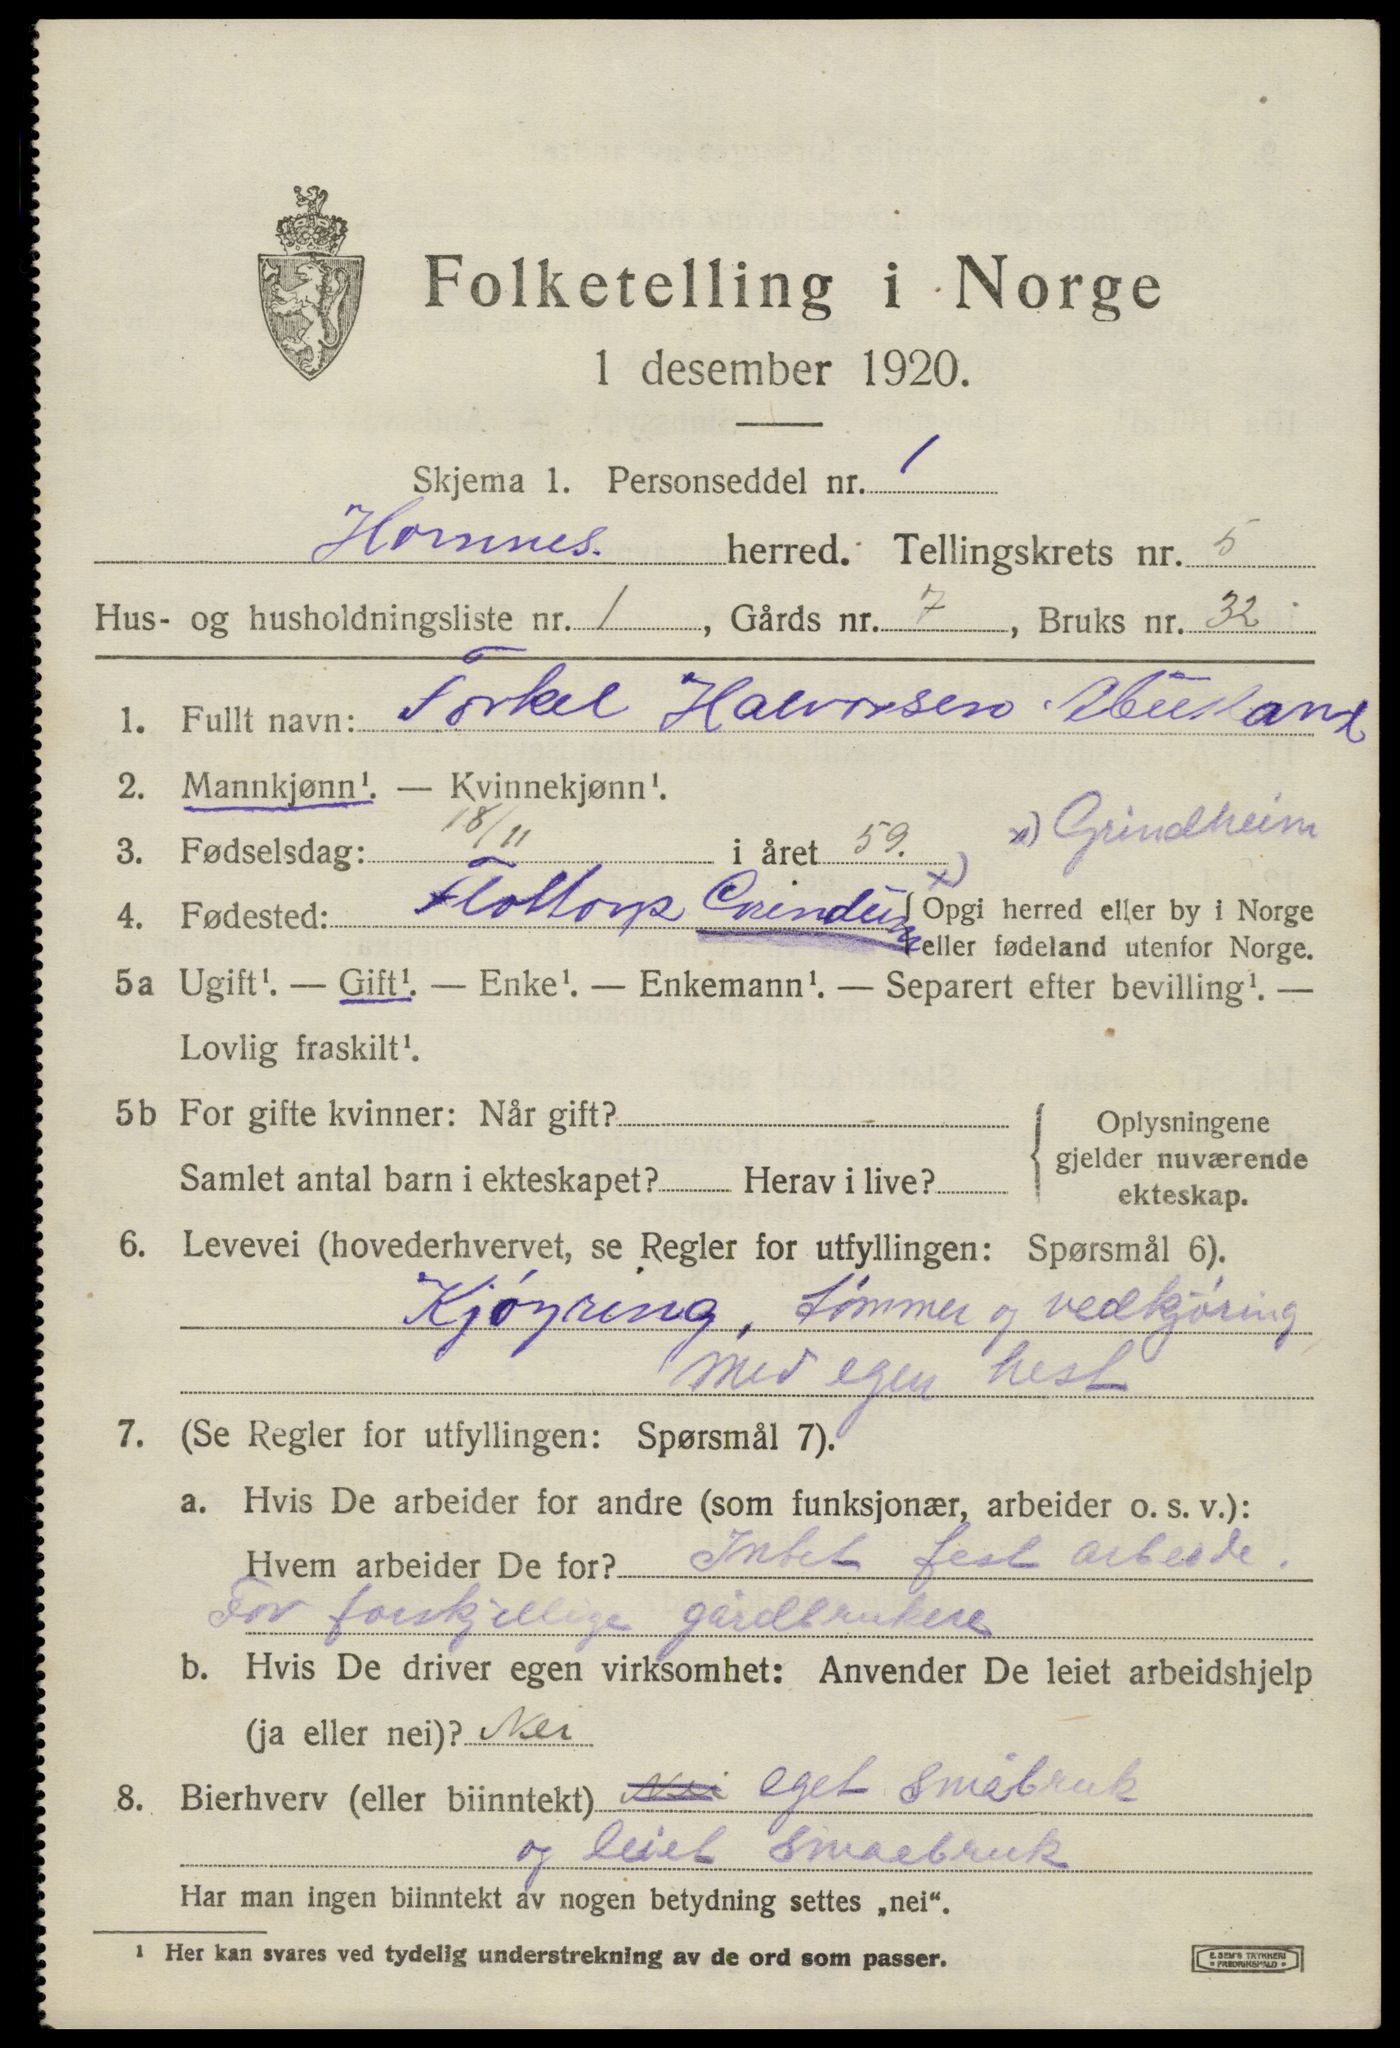 Folketelling i Norge
1 desember 1920.
Skjema 1. Personseddel nr. 1
Hornnes. herred. Tellingskrets nr. 5
Hus- og husholdningsliste nr. 1, Gårds nr. 7, Bruks nr. 32
1. Fullt navn: Torkel Halvorsen
2. Mannkjønn¹. — Kvinnekjønn¹.
x) Grindheim
3. Fødselsdag: 18/11 i året 59. x)
4. Fødested: Flottorp Grindeim { Opgi herred eller by i Norge
eller fødeland utenfor Norge.
5a Ugift¹. — Gift¹. — Enke¹. — Enkemann¹. — Separert efter bevilling¹. —
Lovlig fraskilt¹.
5b For gifte kvinner: Når gift?
Samlet antal barn i ekteskapet? Herav i live?
{ Oplysningene
gjelder nuværende
ekteskap.
6. Levevei (hovederhvervet, se Regler for utfyllingen: Spørsmål 6).
Kjöyring, tømmer og vedkjøring
med egen hest
7. (Se Regler for utfyllingen: Spørsmål 7).
a. Hvis De arbeider for andre (som funksjonær, arbeider o. s. v.):
Hvem arbeider De for? Intet fest arbeide.
For forskjellige gårdbrukere
b. Hvis De driver egen virksomhet: Anvender De leiet arbeidshjelp
(ja eller nei)? Nei
8. Bierhverv (eller biinntekt) Nei eget småbruk
og leiet smaebruk
Har man ingen biinntekt av nogen betydning settes „nei“.
¹ Her kan svares ved tydelig understrekning av de ord som passer.
E. SEM'S TRYKKERI
• FREDRIKSHALD •